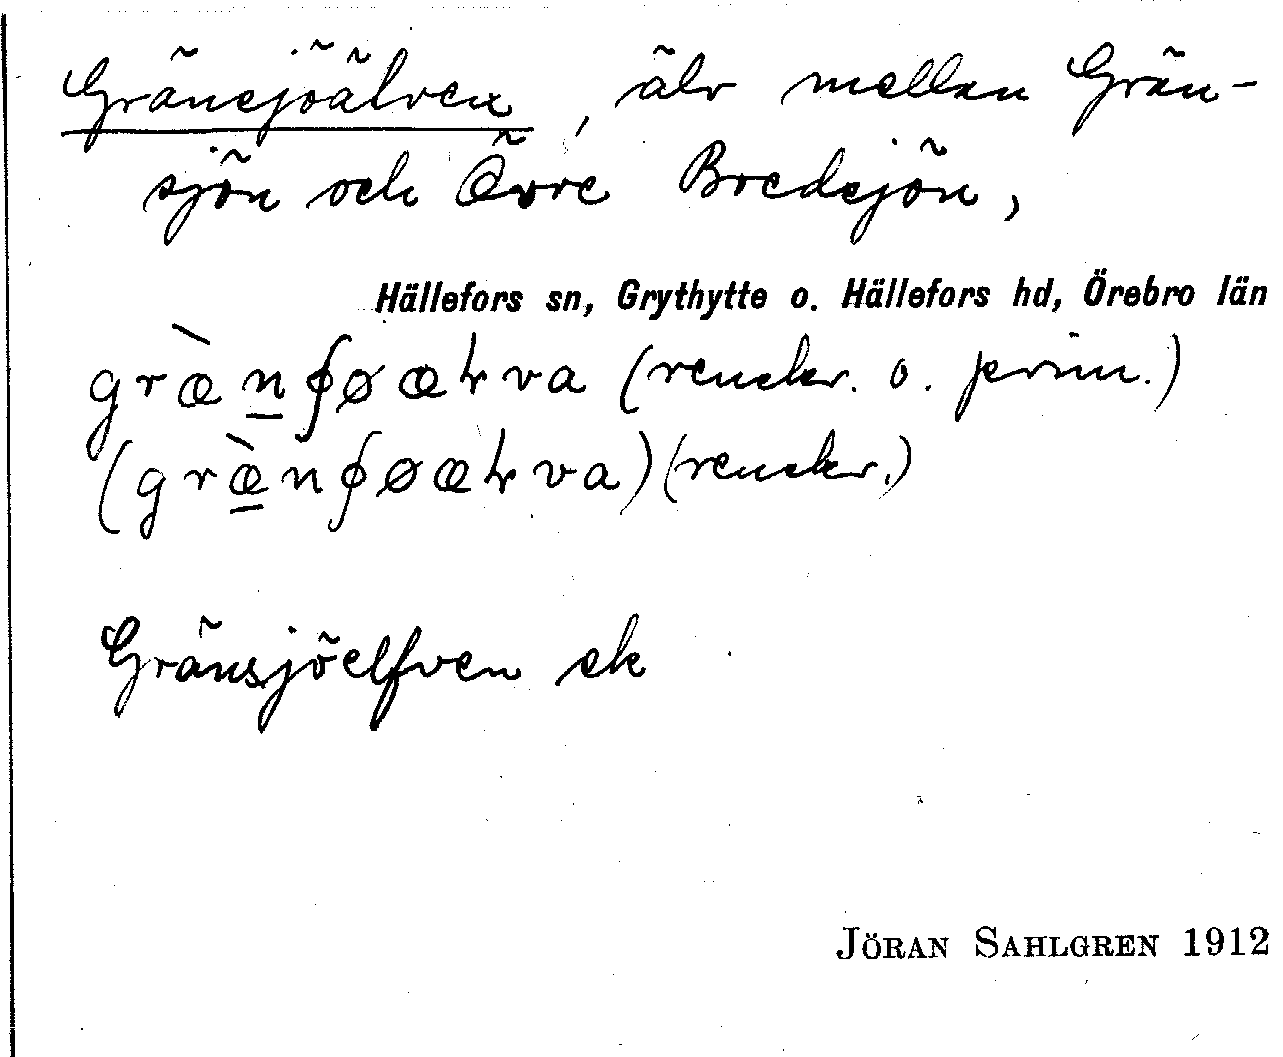 Gränsjöälven, älv mellan Grän-
sjön och Övre Bredsjön,
Hällefors sn, Grythytte o. Hällefors hd, Örebro län
(renskr. o. prim.)
(renskr.)
Gränsjöelfven ek
JÖRAN SAHLGREN 1912